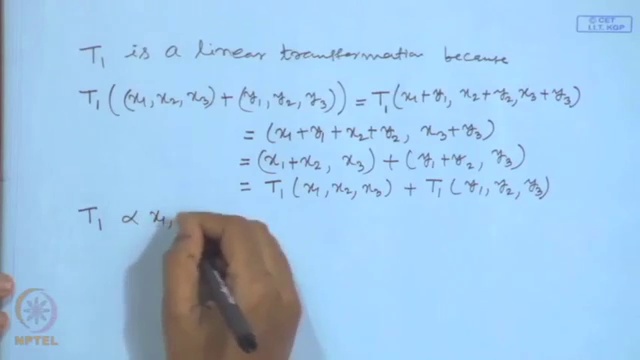 © CET
I.I.T. KGP
T₁ is a linear transformation because
T₁((x₁, x₂, x₃) + (y₁, y₂, y₃)) = T₁(x₁+y₁, x₂+y₂, x₃+y₃)
= (x₁+y₁+x₂+y₂, x₃+y₃)
= (x₁+x₂, x₃) + (y₁+y₂, y₃)
= T₁(x₁, x₂, x₃) + T₁(y₁, y₂, y₃)
T₁ α x₁,
NPTEL